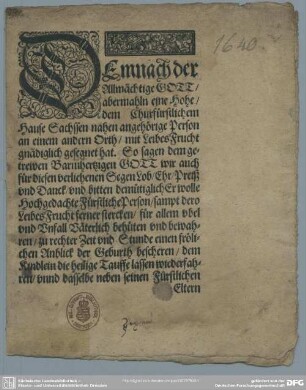 1640.
DEmnach der
Allmächtige GOTT/
abermahln eine Hohe/
dem Churfürstlichem
Hause Sachssen nahen angehörige Person
an einem andern Orth/ mit Leibes Frucht
gnädiglich gesegnet hat. So sagen dem ge-
trewen Barmhertzigen GOTT wir auch
für diesen verliehenen Segen Lob/ Ehr/ Preiß
vnd Danck/ vnd bitten demütiglich Er wolle
Hochgedachte Fürstliche Person/ sampt dero
Leibes Frucht ferner stercken/ für allem vbel
vnd Vnfall Väterlich behüten vnd bewah-
ren/ zu rechter Zeit vnd Stunde einen fröli-
chen Anblick der Geburth bescheren/ dem
Kindlein die heilige Tauffe lassen wiederfah-
ren/ vnnd dasselbe neben seinen Fürstlichen
Eltern